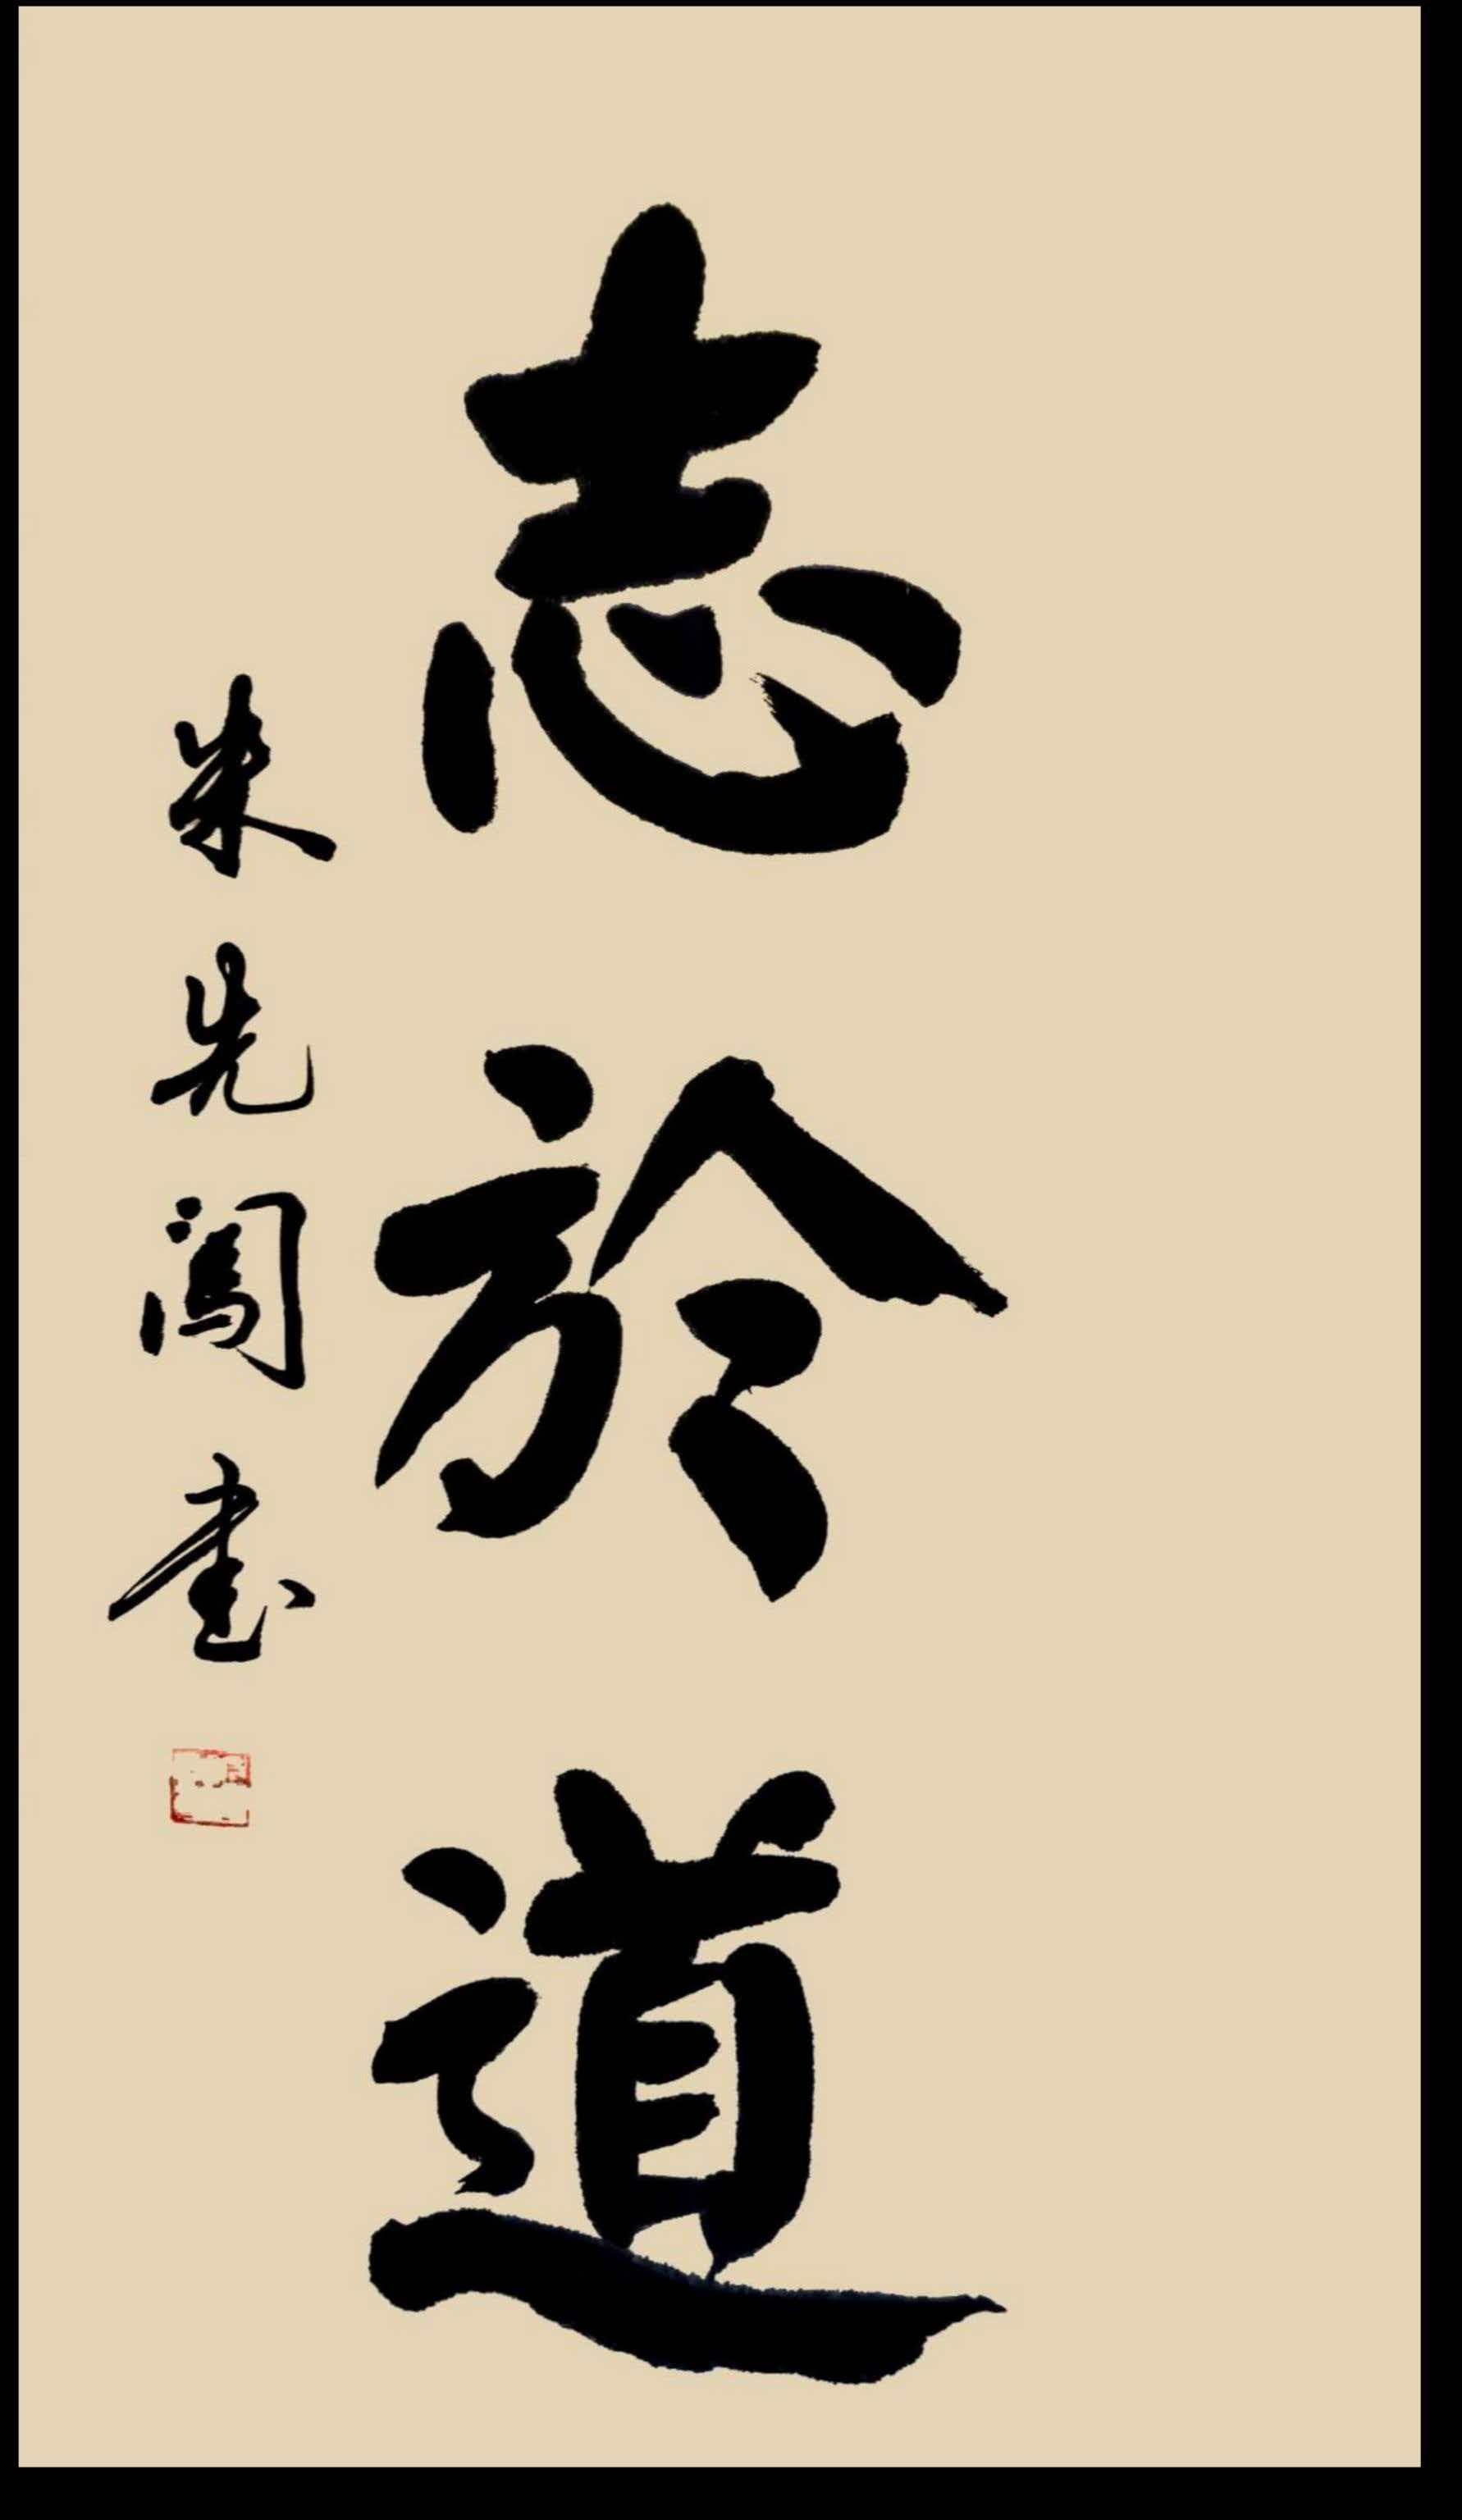 志於道
朱先闯書